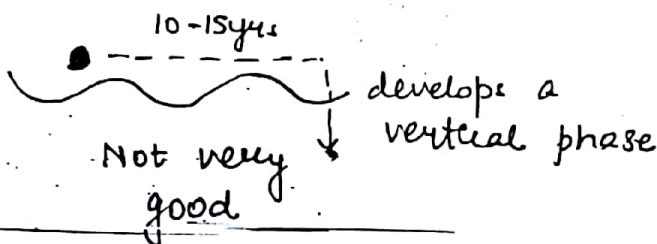 10-15yrs
develops a
vertical phase
Not very
good